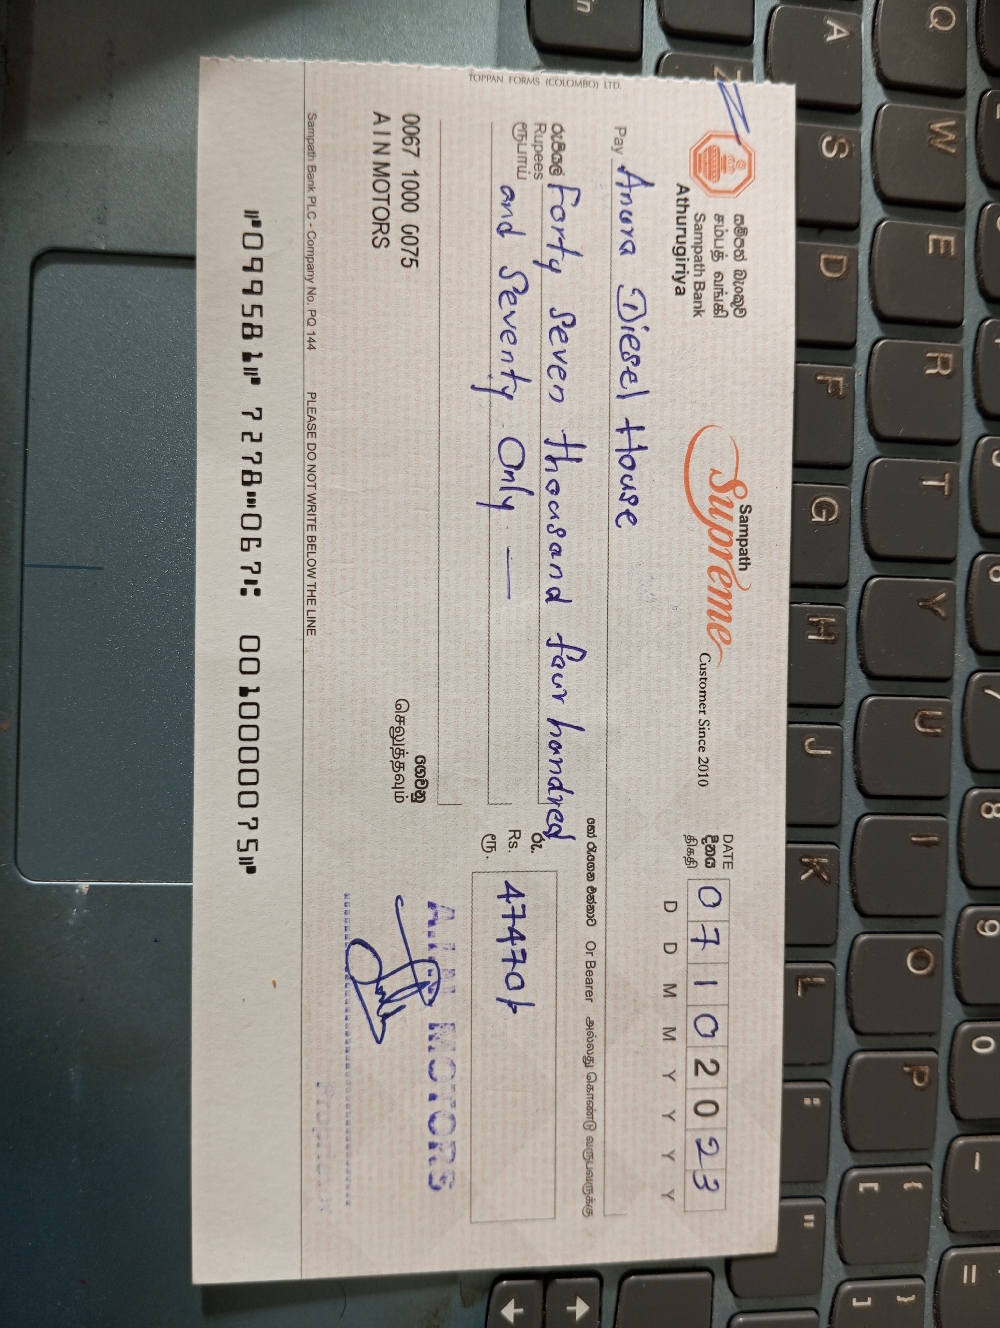 TOPPAN FORMS (COLOMBO) LTD.
සම්පත් බැංකුව
சம்பத் வங்கி
Sampath Bank
Athurugiriya
Sampath
Supreme
Customer Since 2010
DATE
දිනය
திகதி
0 7 1 0 2 0 2 3
D D M M Y Y Y Y
Pay Anura Diesel House
හෝ රැගෙන එන්නාට Or Bearer அல்லது கொண்டு வருபவருக்கு
රුපියල්
Rupees
ரூபாய்
Forty Seven thousand faur handred
and Seventy Only —
රු.
Rs.
ரூ.
47470/-
0067 1000 0075
A I N MOTORS
ගෙවනු
செலுத்தவும்
A.I.N MOTORS
Proprietor
Sampath Bank PLC - Company No. PQ 144 PLEASE DO NOT WRITE BELOW THE LINE
⑈099581⑈ 7278⑉067⑆ 0010000075⑈
Q W E R T Y U I O P
A S D F G H J K L
Z